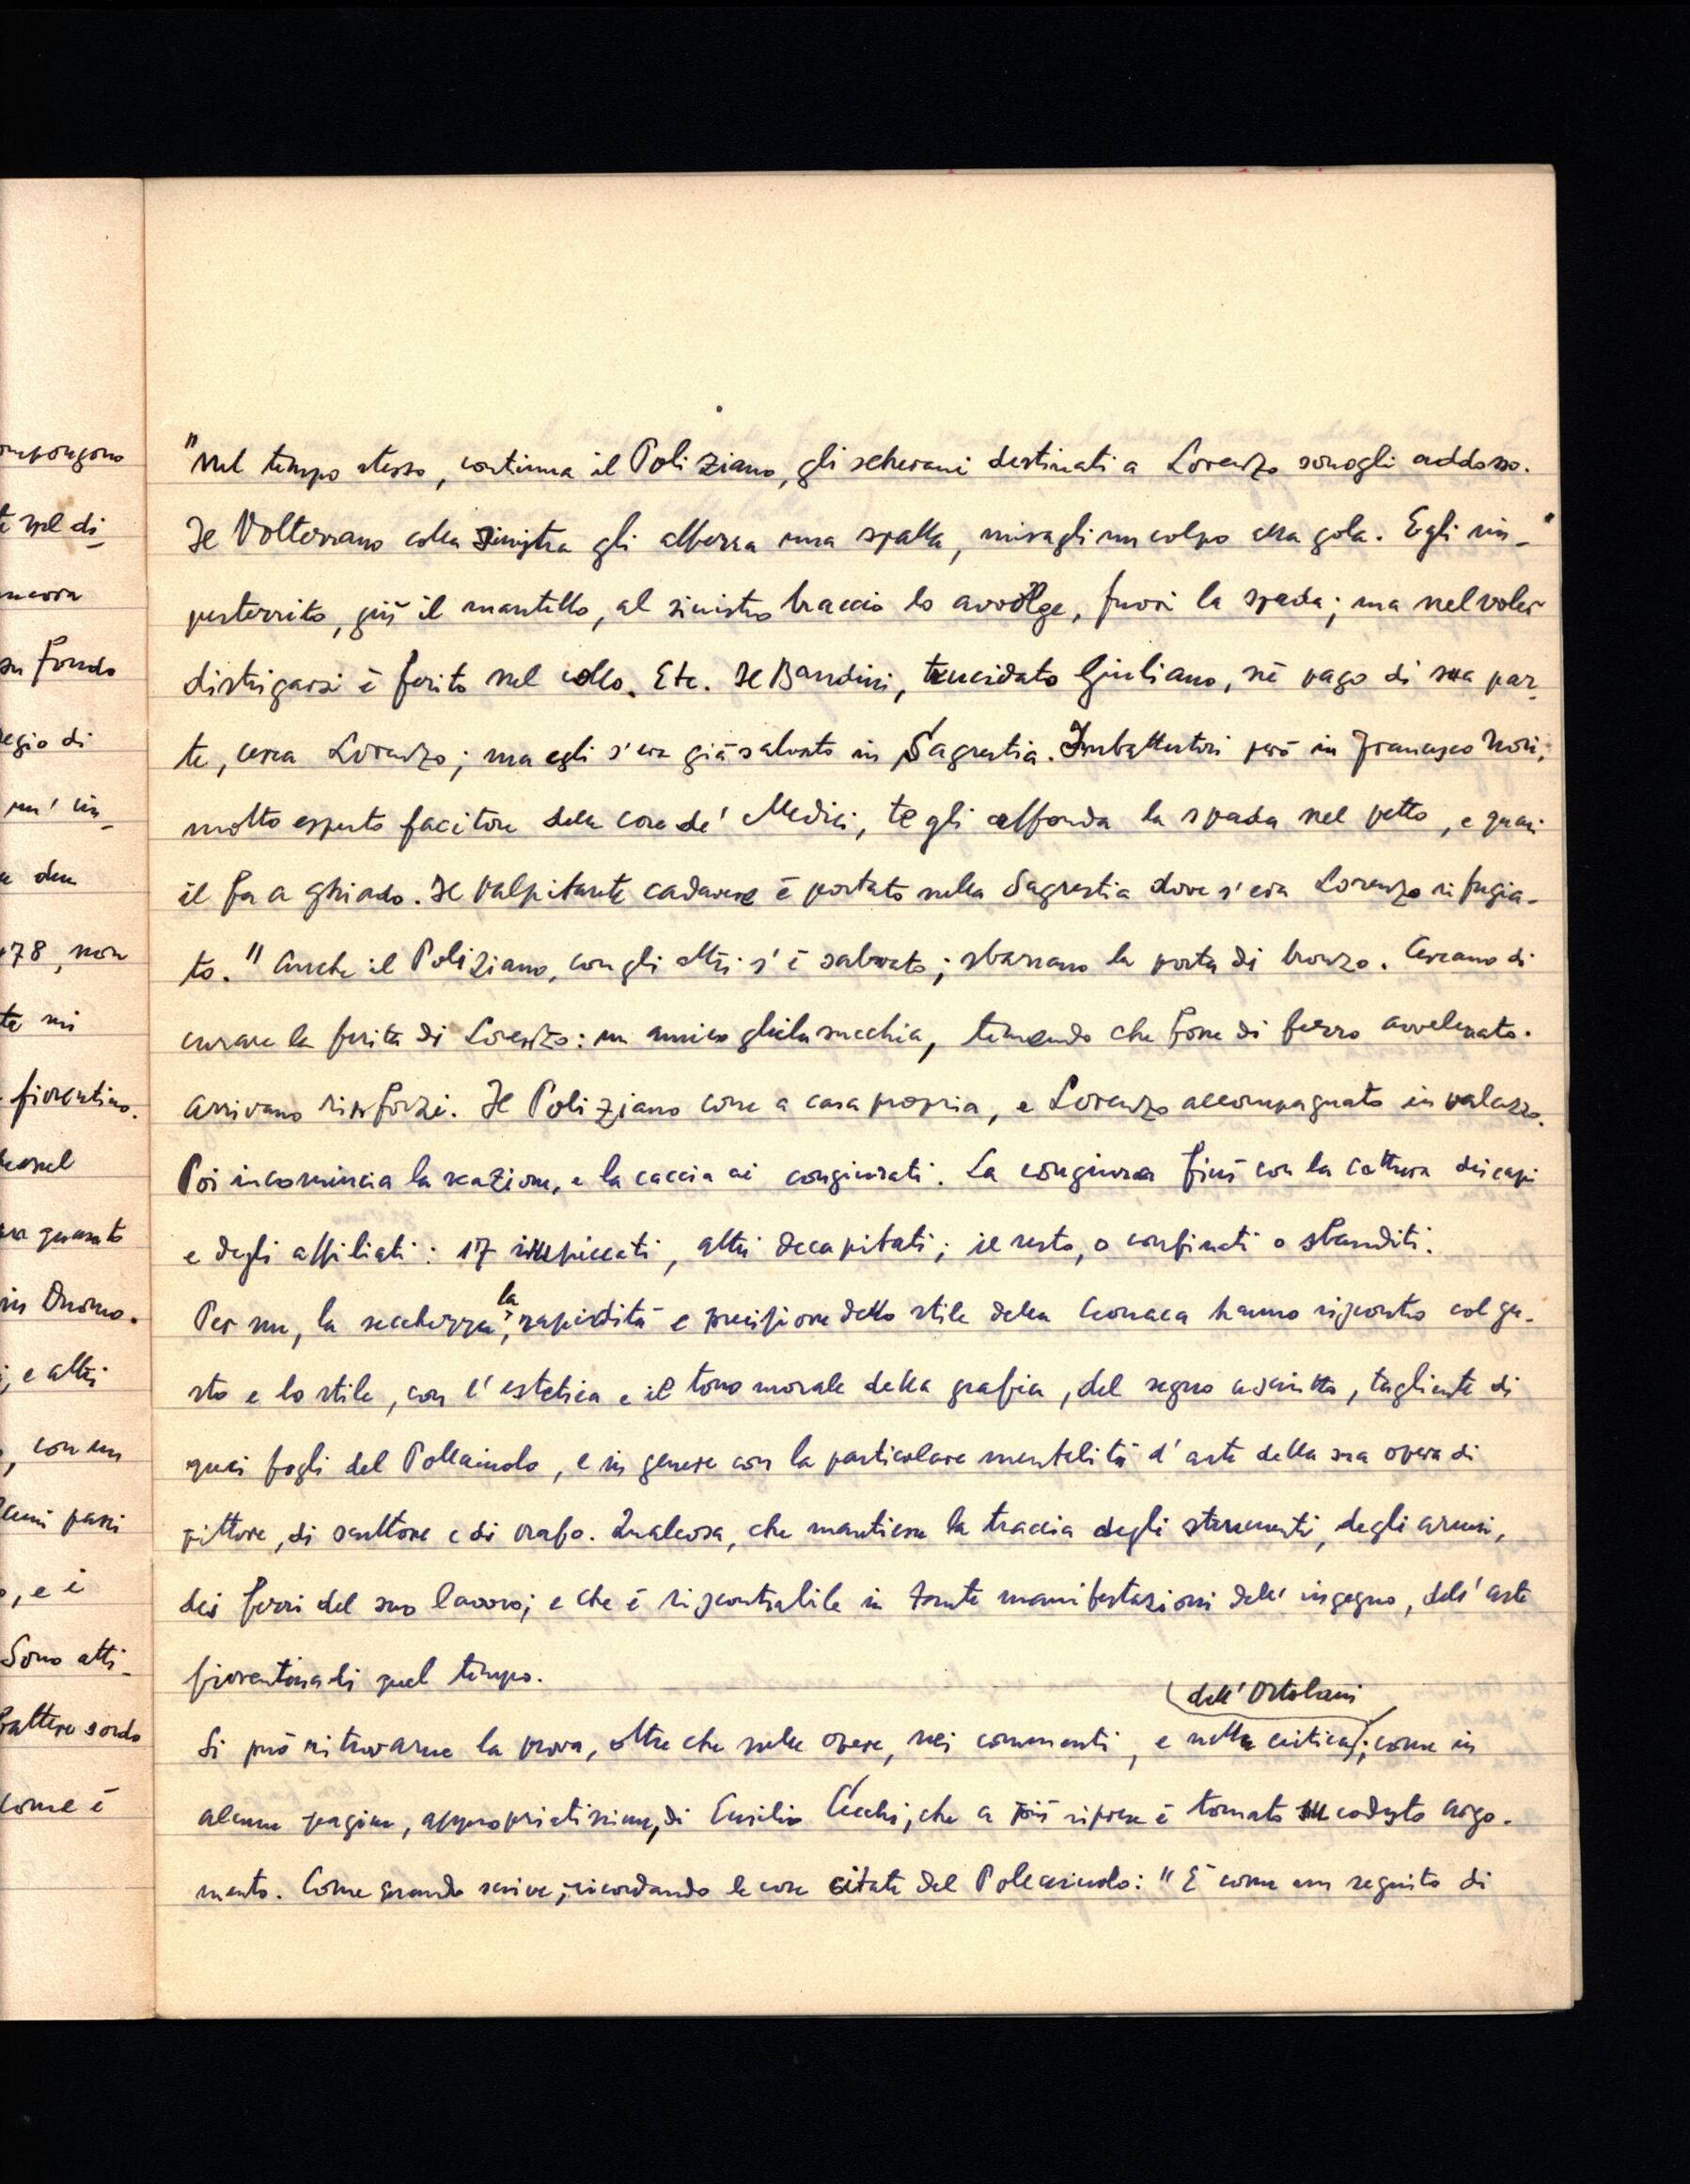 "Nel tempo stesso, continua il Poliziano, gli scherani destinati a Lorenzo sonogli addosso.
Il Volterrano colla sinistra gli afferra una spalla, miragli un colpo alla gola. Egli im-
perterrito, giù il mantello, al sinistro braccio lo avvolge, fuori la spada; ma nel voler
districarsi è ferito nel collo. Etc. Il Bandini, trucidato Giuliano, nè pago di sua par-
te, cerca Lorenzo; ma egli s'era già salvato in Sagrestia. Imbattutosi però in Francesco Nori,
molto esperto facitore delle cose de' Medici, te gli affonda la spada nel petto, e quasi
il fa a ghiado. Il palpitante cadavere è portato nella Sagrestia dove s'era Lorenzo rifugia-
to." Anche il Poliziano, con gli altri s'è salvato; sbarrano la porta di bronzo. Cercano di
curare la ferita di Lorenzo: un amico gliela succhia, temendo che fosse di ferro avvelenato.
Arrivano rinforzi. Il Poliziano corre a casa propria, e Lorenzo accompagnato in palazzo.
Poi incomincia la reazione, e la caccia ai congiurati. La congiura finì con la cattura dei capi
e degli affiliati: 17 impiccati, altri decapitati; il resto, o confinati o sbanditi.
Per me, la secchezza, la rapidità e precisione dello stile della Cronaca hanno riscontro col gu-
sto e lo stile, con l'estetica e il tono morale della grafia, del segno asciutto, tagliente di
quei fogli del Pollaiuolo, e in genere con la particolare mentalità d'arte della sua opera di
pittore, di scultore e di orafo. Qualcosa, che mantiene la traccia degli strumenti, degli arnesi,
dei ferri del suo lavoro; e che è riscontrabile in tante manifestazioni dell'ingegno, dell'arte
fiorentina di quel tempo.
dell'Ortolani
Si può ritrovarne la prova, oltre che nelle opere, nei commenti, e nella critica; come in
alcune pagine, appropriatissime, di Emilio Cecchi, che a più riprese è tornato su codesto argo-
mento. Come quando scrive, ricordando le cose citate del Pollaiuolo: "È come un seguito di
te nel di-
ancora
su fondo
regio di
un' im-
478, non
te mi
fiorentino.
in Duomo.
, e altri
, con un
, e i
Sono atti-
battere sordo
come è